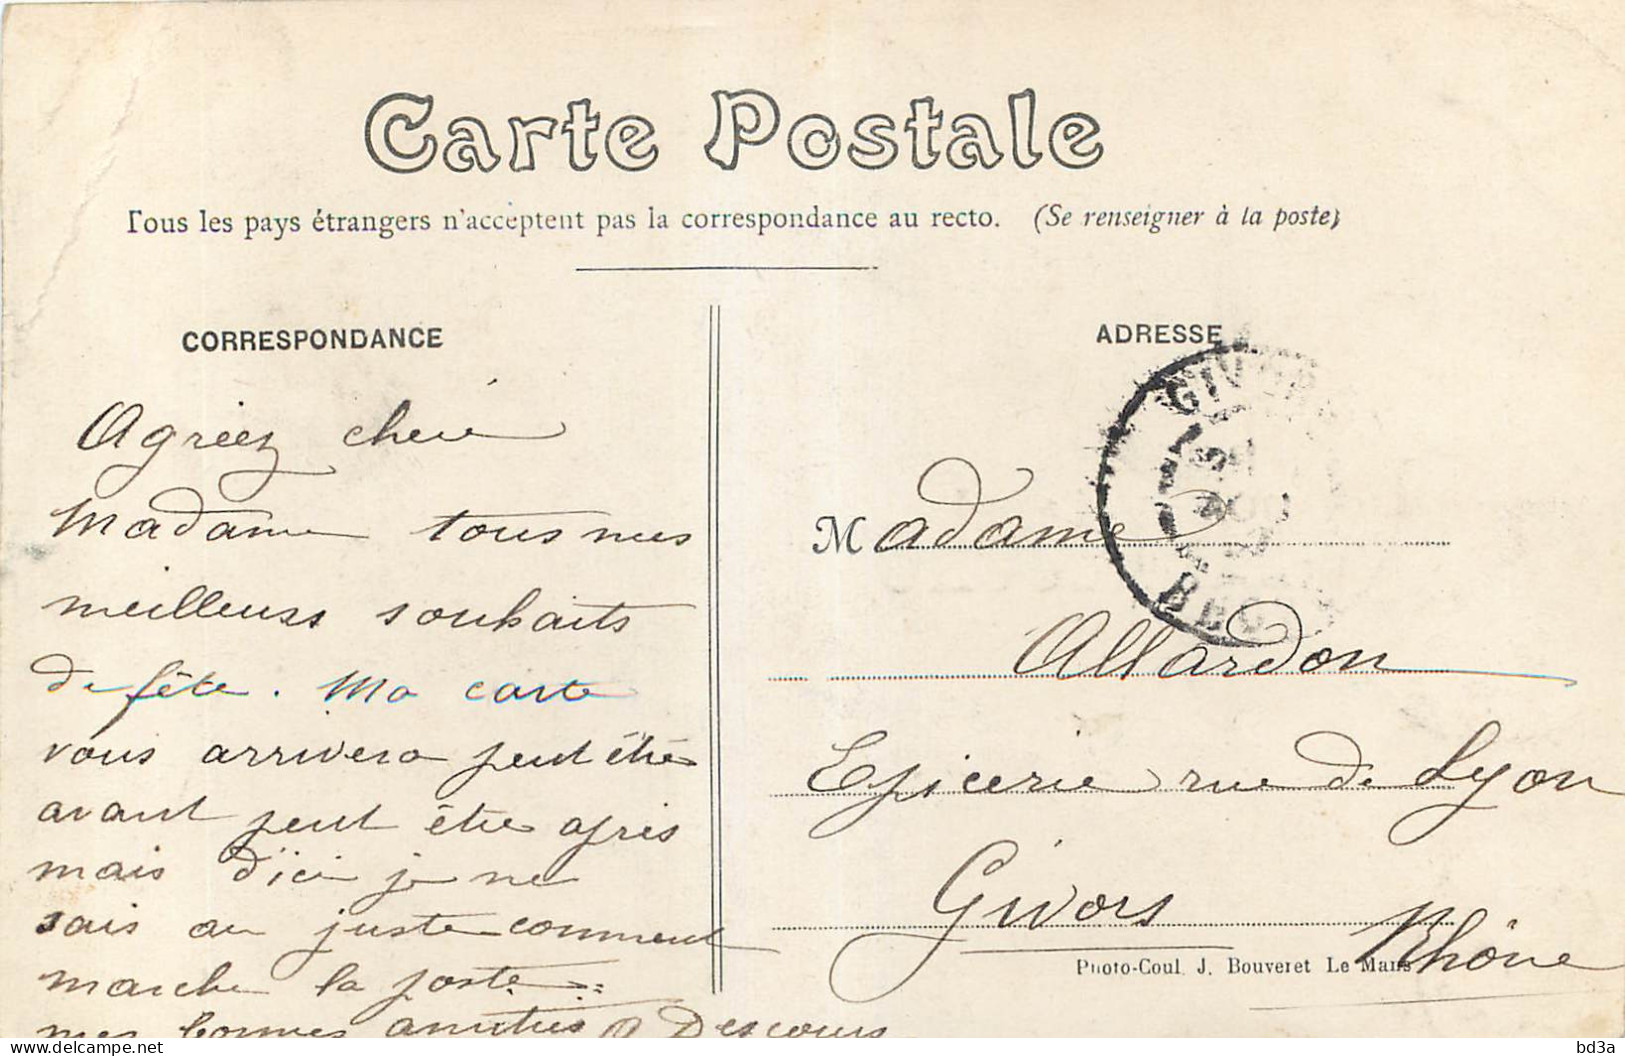 Carte Postale
Tous les pays étrangers n'acceptent pas la correspondance au recto. (Se renseigner à la poste)
CORRESPONDANCE
Agréez chère
Madame tous mes
meilleurs souhaits
de fête. Ma carte
vous arrivera peut être
avant peut être après
mais d'ici je ne
sais au juste comment
marche la poste
mes bonnes amitiés A Descours
ADRESSE
GIVORS
RHONE
Madame
Allardon
Epicerie rue de Lyon
Givors Rhône
Photo-Coul. J. Bouveret Le Mans
www.delcampe.net
bd3a